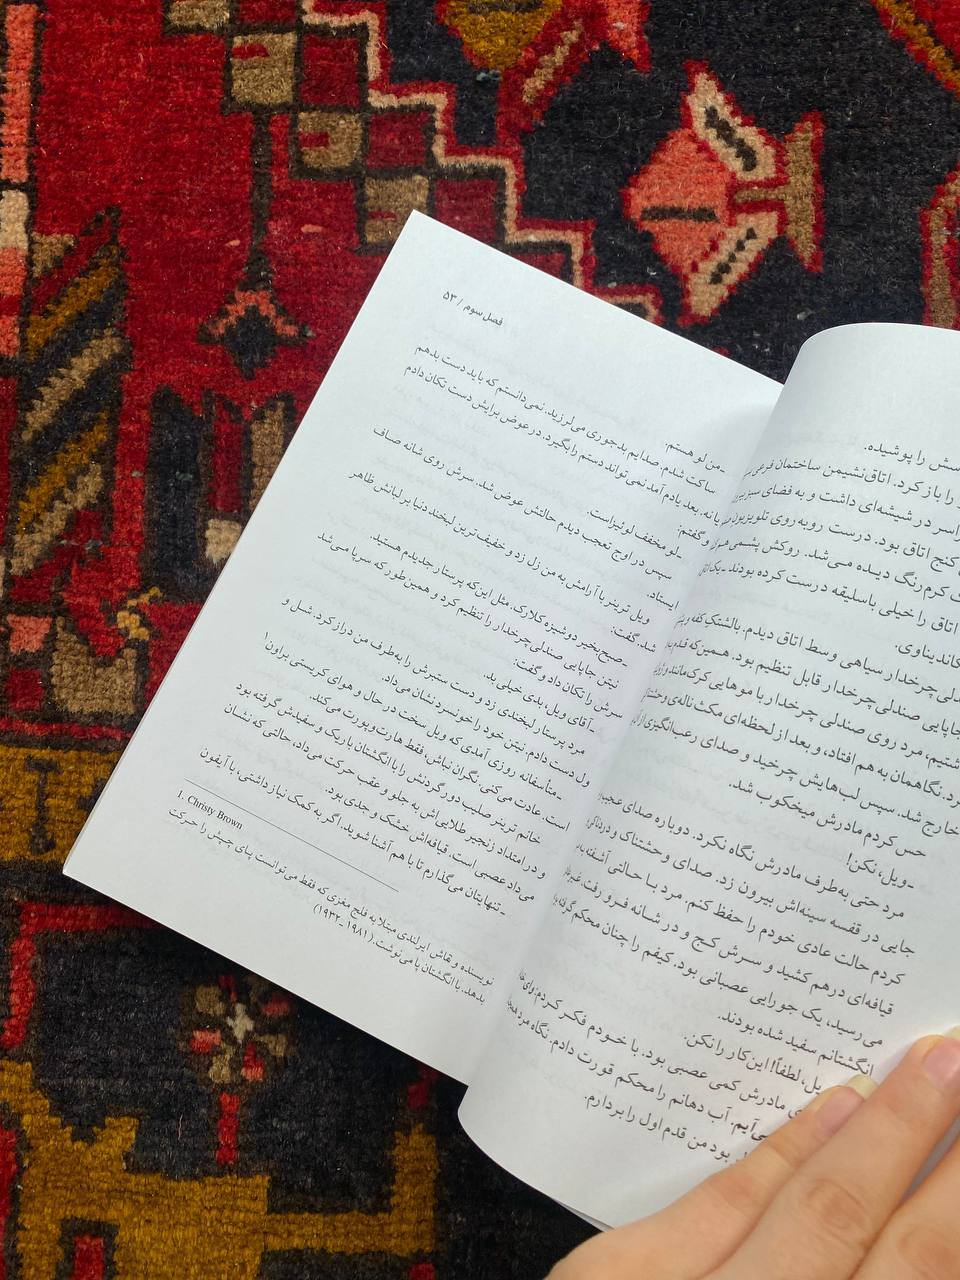 را پوشیده.
را باز کرد. اتاق‌نشیمن ساختمان فرعی
در شیشه‌ای داشت و به فضای سبز
کنج اتاق بود. درست روبه‌روی تلویزیون
کرم‌رنگ دیده می‌شد. روکش پشمی
اتاق را خیلی باسلیقه درست کرده بودند ـ یک
چرخدار سیاهی وسط اتاق دیدم. بالشتک
جابجایی صندلی چرخدار قابل تنظیم بود. همین‌که قدم
مرد روی صندلی چرخدار با موهایی کرک‌مانند
نگاهمان به هم افتاد، و بعد از لحظه‌ای مکث ناله‌ی
خارج شد. سپس لب‌هایش چرخید و صدای رعب‌انگیزی از
حس کردم مادرش میخکوب شد.
ـ ویل، نکن!
مرد حتی به‌طرف مادرش نگاه نکرد. دوباره صدای
جایی در قفسه سینه‌اش بیرون زد. صدای وحشتناک و
کردم حالت عادی خودم را حفظ کنم. مرد با حالتی آشفته
قیافه‌ای درهم کشید و سرش کج و در شانه فرو رفت.
می‌رسید، یک جورایی عصبانی بود. کیفم را چنان محکم گرفته
انگشتانم سفید شده بودند.
ویل، لطفاً! این کار را نکن.
مادرش کمی عصبی بود. با خودم فکر کردم:
آب دهانم را محکم قورت دادم. نگاه مرد
بود من قدم اول را بردارم.
فصل سوم / ۵۳
ـ من لو هستم.
ساکت شدم. صدایم بدجوری می‌لرزید. نمی‌دانستم که باید دست بدهم
یا نه. بعد یادم آمد نمی‌تواند دستم را بگیرد. در عوض برایش دست تکان دادم
و گفتم:
ـ لو مخفف لوئیزاست.
سپس در اوج تعجب دیدم حالتش عوض شد. سرش روی شانه صاف
ایستاد.
ویل ترینر با آرامش به من زل زد و خفیف‌ترین لبخند دنیا بر لبانش ظاهر
شد. گفت:
ـ صبح‌بخیر دوشیزه کلارک. مثل این‌که پرستار جدیدم هستید.
نیتن جاپایی صندلی چرخدار را تنظیم کرد و همین‌طور که سرپا می‌شد
سرش را تکان داد و گفت:
ـ آقای ویل، بدی خیلی بد.
مرد پرستار لبخندی زد و دست ستبرش را به‌طرف من دراز کرد. شل و
ول دست دادم. نیتن خود را خونسرد نشان می‌داد.
ـ متأسفانه روزی آمدی که ویل سخت در حال و هوای کریستی براون1
است. عادت می‌کنی. نگران نباش، فقط هارت‌وپورت می‌کند.
خانم ترینر صلیب دور گردنش را با انگشتان باریک و سفیدش گرفته بود
و در امتداد زنجیر طلایی‌اش به جلو و عقب حرکت می‌داد، حالتی که نشان
می‌داد عصبی است. قیافه‌اش خشک و جدی بود.
ـ تنهایتان می‌گذارم تا با هم آشنا شوید. اگر به کمک نیاز داشتی، با آیفون
1. Christy Brown
نویسنده و نقاش ایرلندی مبتلا به فلج مغزی که فقط می‌توانست پای چپش را حرکت
بدهد. با انگشتان پا می‌نوشت. (۱۹۸۱ـ۱۹۳۲)